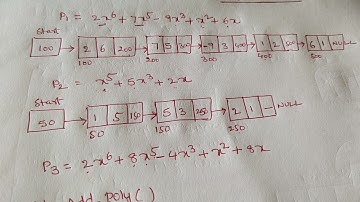 P₁ = 2x⁶ + 7x⁵ - 9x³ + x² + 6x
Start
100 → 2 6 200 → 7 5 300 → -9 3 400 → 1 2 500 → 6 1 NULL
100 200 300 400 500
P₂ = x⁵ + 5x³ + 2x
Start
50 → 1 5 150 → 5 3 250 → 2 1 - NULL
50 150 250
P₃ = 2x⁶ + 8x⁵ - 4x³ + x² + 8x
Add-poly()